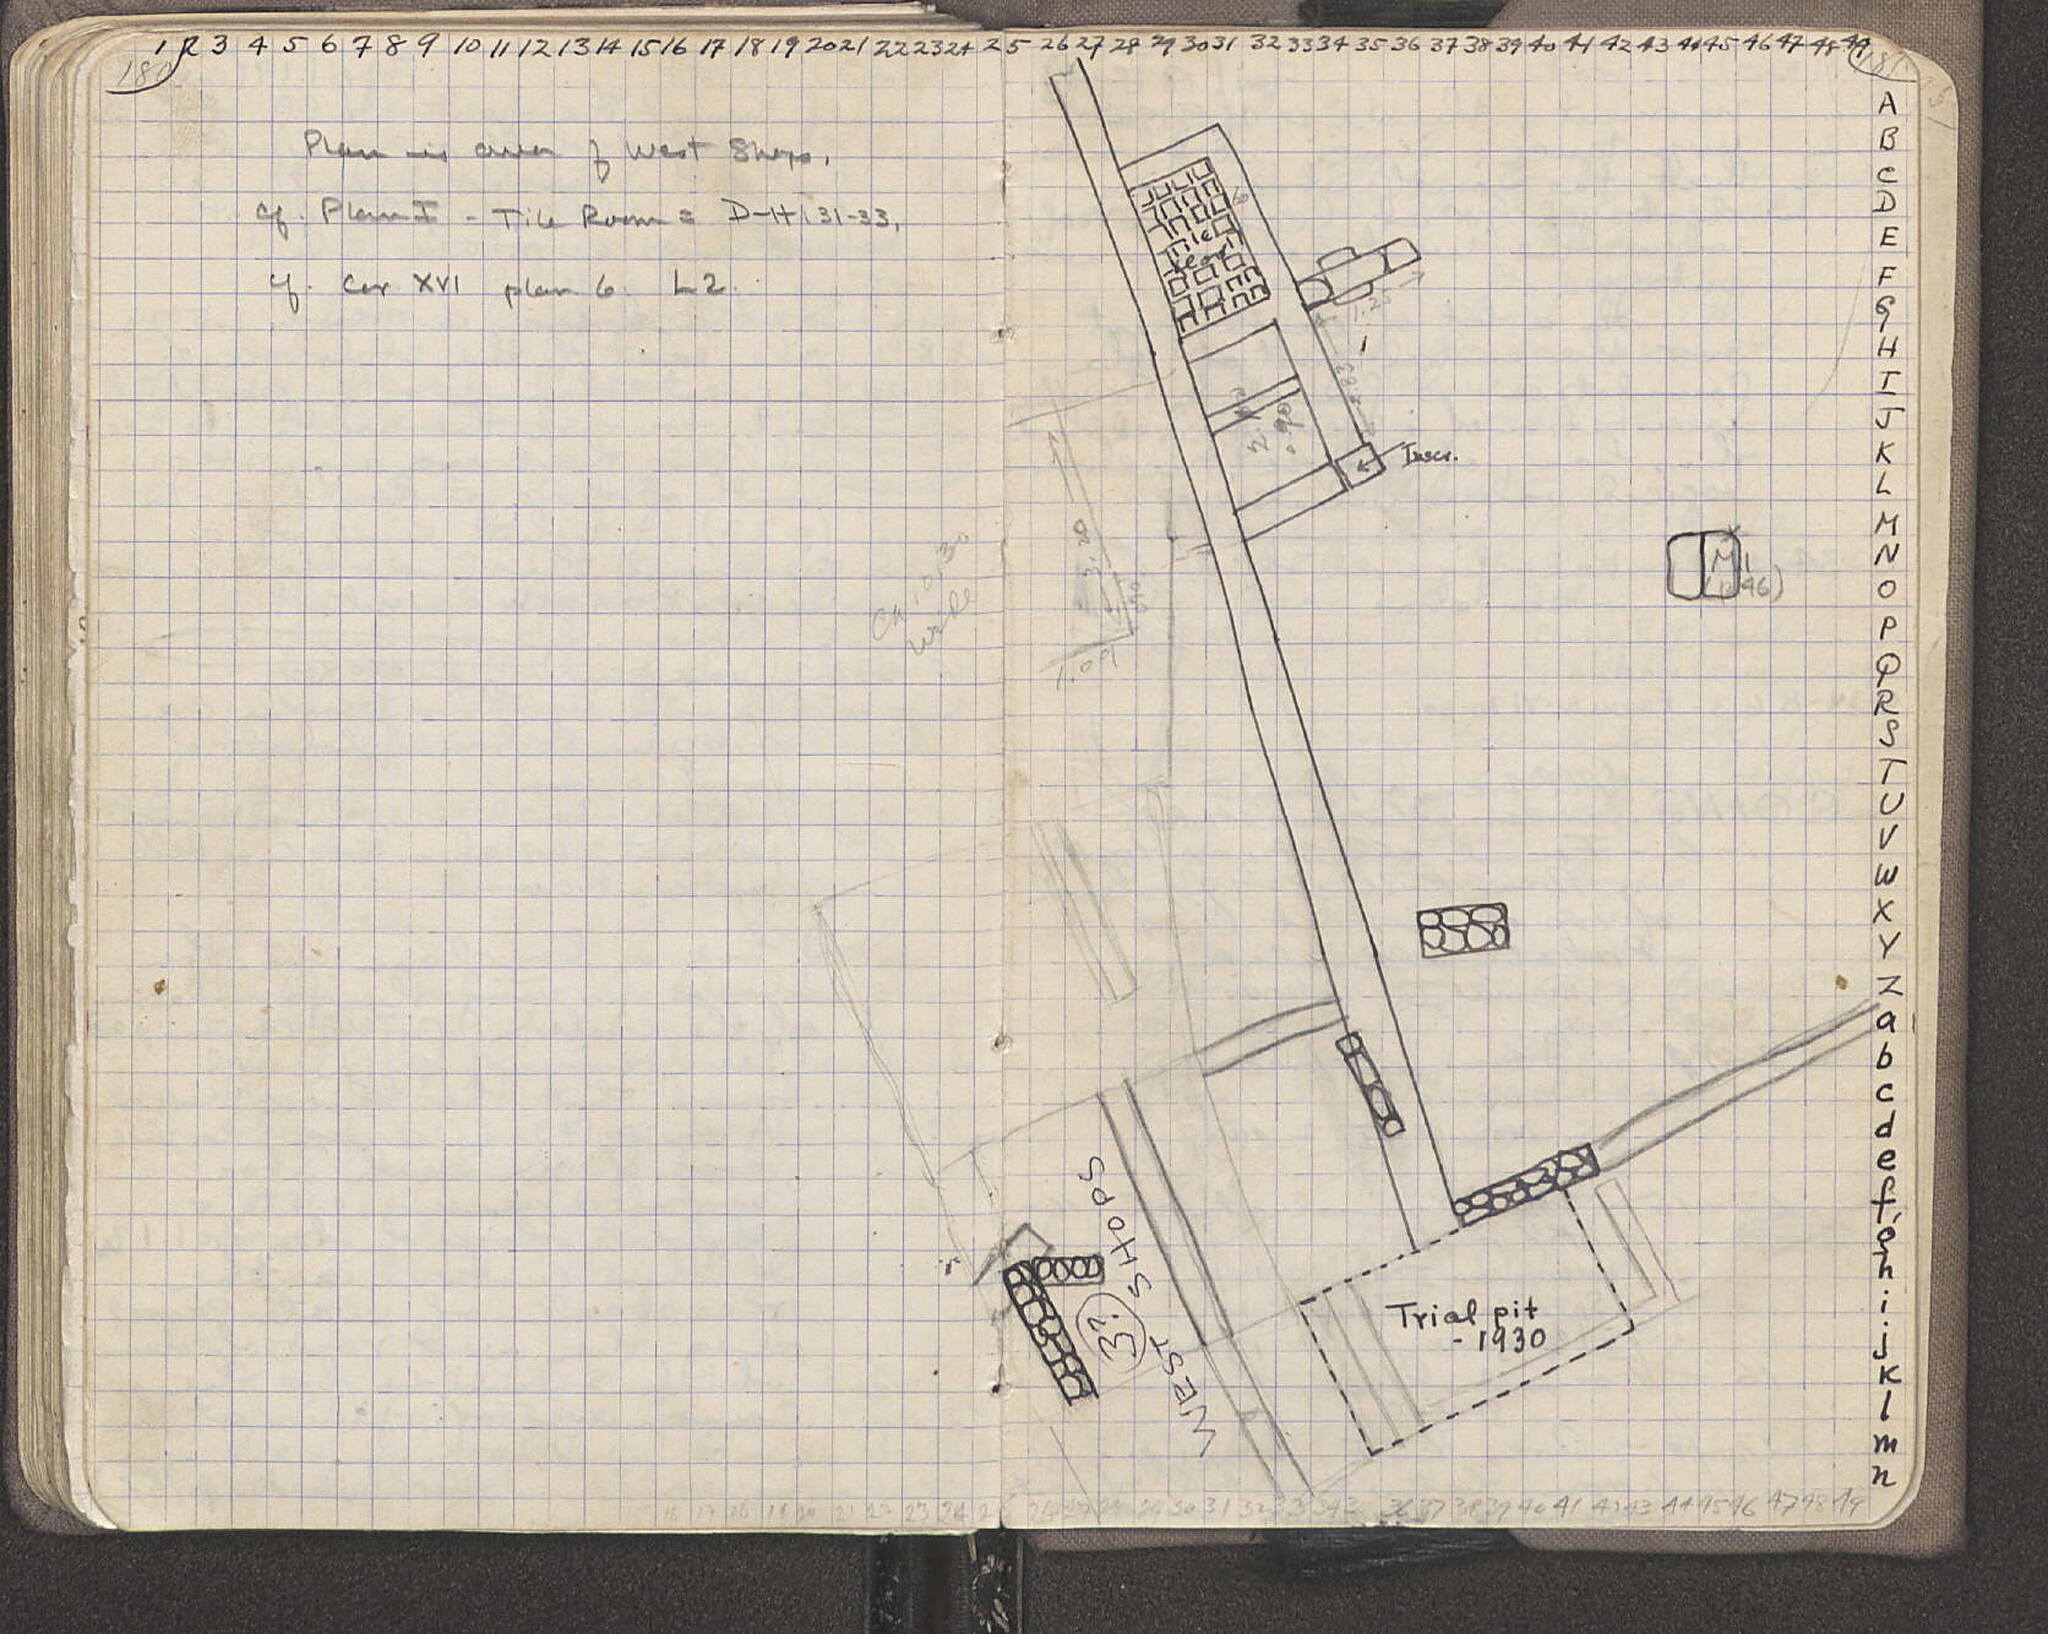 1 2 3 4 5 6 7 8 9 10 11 12 13 14 15 16 17 18 19 20 21 22 23 24 25 26 27 28 29 30 31 32 33 34 35 36 37 38 39 40 41 42 43 44 45 46 47 48 49
180
181
Plan in area of West Shops.
cf. Plan I - Tile Room = D-H: 31-33.
cf. Cor XVI plan 6 L2.
A
B
C
D
E
F
G
H
I
J
K
L
M
N
O
P
Q
R
S
T
U
V
W
X
Y
Z
a
b
c
d
e
f
g
h
i
j
k
l
m
n
Tile
floor
60
1.25
3.83
Inscr.
0.90
3.20
1.09
Ca 10.30
wide
WEST SHOPS
3?
Trial pit
- 1930
16 17 18 19 20 21 22 23 24 25 26 27 28 29 30 31 32 33 34 35 36 37 38 39 40 41 42 43 44 45 46 47 48 49